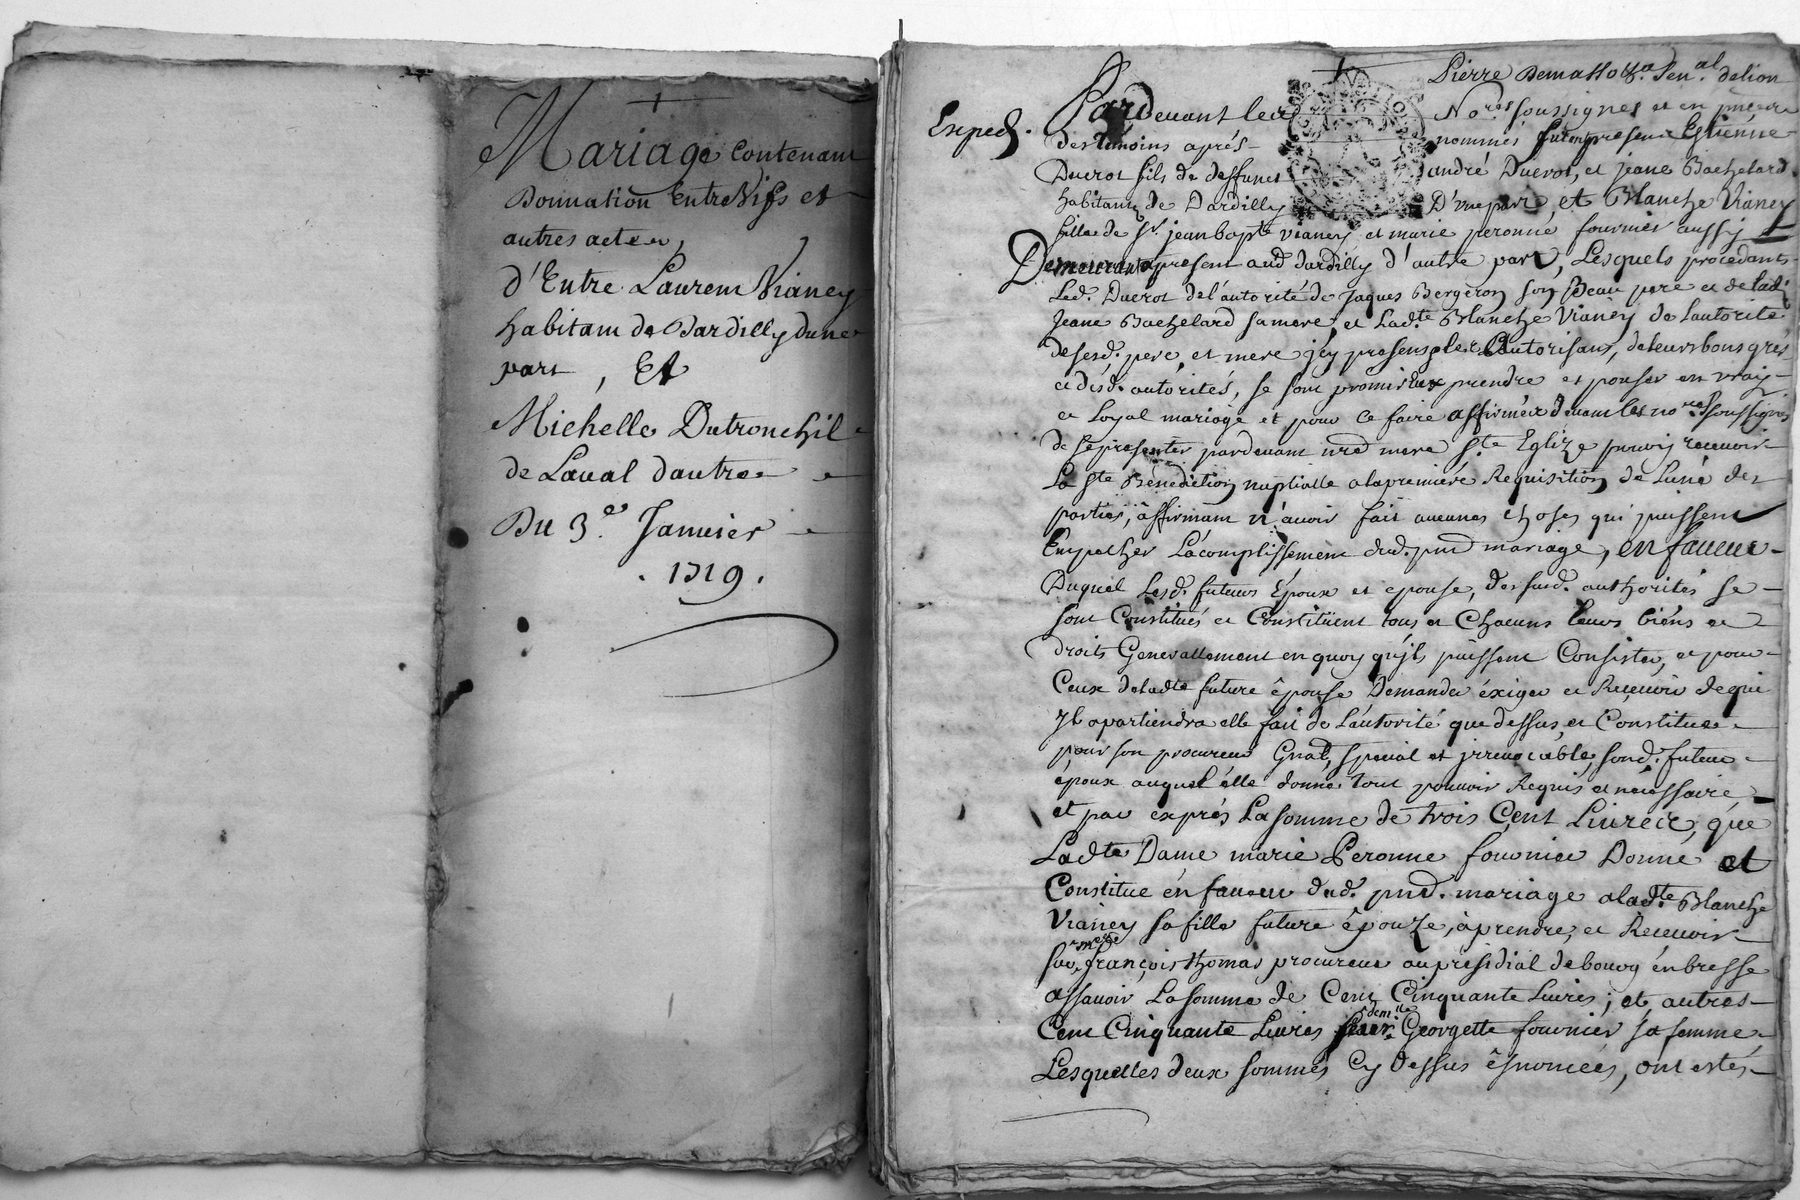 Mariage Contenant
Donnation Entre Vifs et
autres actes,
d'Entre Laurent Vianey
habitant de Dardilly dune
part, Et
Michelle Dutronchil
de Laval dautre
Du 3.e Janvier
. 1719 .
Exped.
Pierre Demasso Sen.al delion
Pardevant les No.res soussignes et en pnce
des témoins aprés nommés furent presens Estienne
Ducrot fils de deffunct andré Ducrot, et jeane Bachelard
habitant de Dardilly D'une part, et Blanche Vianey
fille de Sr. jean bapte vianey et marie peronne fournier aussy
Demeurant apresent aud dardilly d'autre part, Lesquels procedants
Led. Ducrot de l'autorité de jaques Bergeron son Beau pere et de lad.
Jeane Bachelard sa mere, et Lad.te Blanche Vianey de Lautorité
de sesd. pere, et mere jcy presens les Autorisans, de leurs bons gres
et dsd. autorités, se sont promis eux prendre et pouser en vray
et loyal mariage et pour ce faire affirmer devant les no.res soussignés
de se presenter pardevant nre mere s.te Eglize pour y recevoir
La ste Bénédiction nuptialle a la premiére Requisition de Lune des
parties, affirmant n'avoir fait aucunes choses qui puissent
Empecher L'acomplissement dud. pnd mariage, en faveur
Duquel Lesd. futeurs Epoux et epouse, des susd. authorités se
sont Constitués et Constituent tous et Chacuns leurs biéns et
droits Generallement en quoy qu'jls puissent Consister, et pour
Ceux de ladte future épouse Demander éxiger et Recevoir de qui
jl apartiendra elle fait de l'autorité que dessus, et Constitue
pour son procureur Gnal, special et jrrevocable, sond. futeur
époux auquel élle donne tout pouvoir Requis et néssaire,
et par exprés La somme de trois Cent Livres, que
Ladte Dame marie Peronne fournier Donne et
Constitue én faveur dud. pnd. mariage a ladte Blanche
Vianey sa fille future épouze, à prendre, et Recevoir
sur françois thomas procureur au présidial de bourg én bresse
assavoir La somme de Cent Cinquante Livres; et autres
Cent Cinquante Livres sur demlle Georgette fournier sa femme
Lesquelles deux sommes Cy dessus énoncées, ont estés